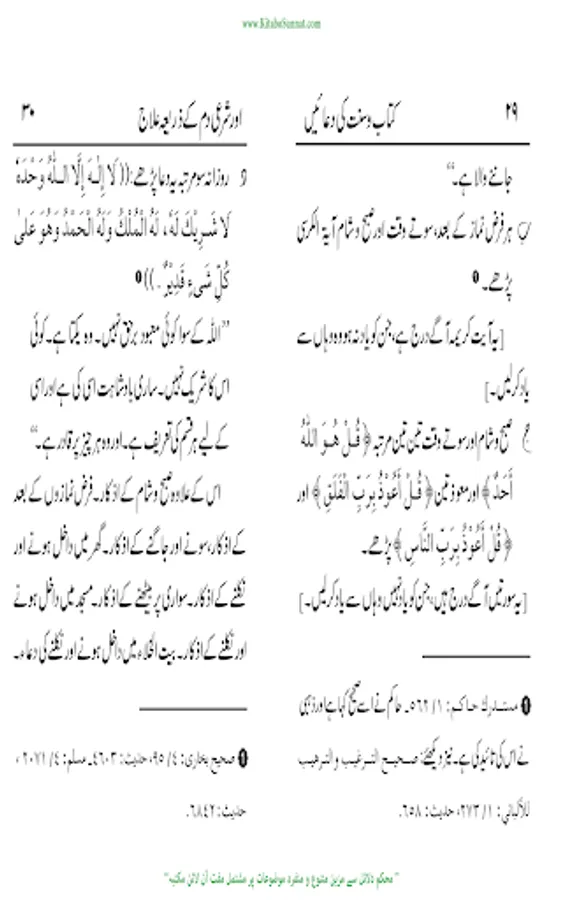 www.KitaboSunnat.com
کتاب وسنت کی دعائیں ۲۹
جاننے والا ہے۔“
ب ہر فرض نماز کے بعد، سوتے وقت اور صبح و شام آیۃ الکرسی
پڑھے۔ ❶
[یہ آیت کریمہ آگے درج ہے، جن کو یاد نہ ہو وہ وہاں سے
یاد کرلیں۔]
ج صبح و شام اور سوتے وقت تین تین مرتبہ ﴿ قُلْ هُوَ اللّٰهُ
أَحَدٌ﴾ اور معوذتین ﴿ قُلْ أَعُوْذُ بِرَبِّ الْفَلَقِ ﴾ اور
﴿ قُلْ أَعُوْذُ بِرَبِّ النَّاسِ ﴾ پڑھے۔
[یہ سورتیں آگے درج ہیں، جن کو یاد نہیں وہاں سے یاد کرلیں۔]
❶ مستدرك حاكم: ۱/ ۵۶۲۔ حاکم نے اسے صحیح کہا ہے اور ذہبی
نے اس کی تائید کی ہے۔ نیز دیکھئے: صحیح الترغیب والترهیب
للألباني: ۱/ ۲۷۳، حدیث: ۶۵۸.
اور شرعی دم کے ذریعہ علاج ۳۰
و روزانہ سو مرتبہ یہ دعا پڑھے: ((لَا إِلٰهَ إِلَّا اللّٰهُ وَحْدَهٗ
لَا شَرِيْكَ لَهٗ، لَهُ الْمُلْكُ وَلَهُ الْحَمْدُ وَهُوَ عَلىٰ
كُلِّ شَيْءٍ قَدِيْرٌ.)) ❶
”اللہ کے سوا کوئی معبود برحق نہیں۔ وہ یکتا ہے۔ کوئی
اس کا شریک نہیں۔ ساری بادشاہت اسی کی ہے اور اسی
کے لیے ہر قسم کی تعریف ہے۔ اور وہ ہر چیز پر قادر ہے۔“
اس کے علاوہ صبح و شام کے اذکار۔ فرض نمازوں کے بعد
کے اذکار، سونے اور جاگنے کے اذکار۔ گھر میں داخل ہونے اور
نکلنے کے اذکار۔ سواری پر بیٹھنے کے اذکار۔ مسجد میں داخل ہونے
اور نکلنے کے اذکار۔ بیت الخلاء میں داخل ہونے اور نکلنے کی دعاء۔
❶ صحیح بخاری: ۴/ ۹۵، حدیث: ۴۶۰۳۔ مسلم: ۴/ ۲۰۷۱،
حدیث: ۶۸۴۲.
”محکم دلائل سے مزین متنوع و منفرد موضوعات پر مشتمل مفت آن لائن مکتبہ“